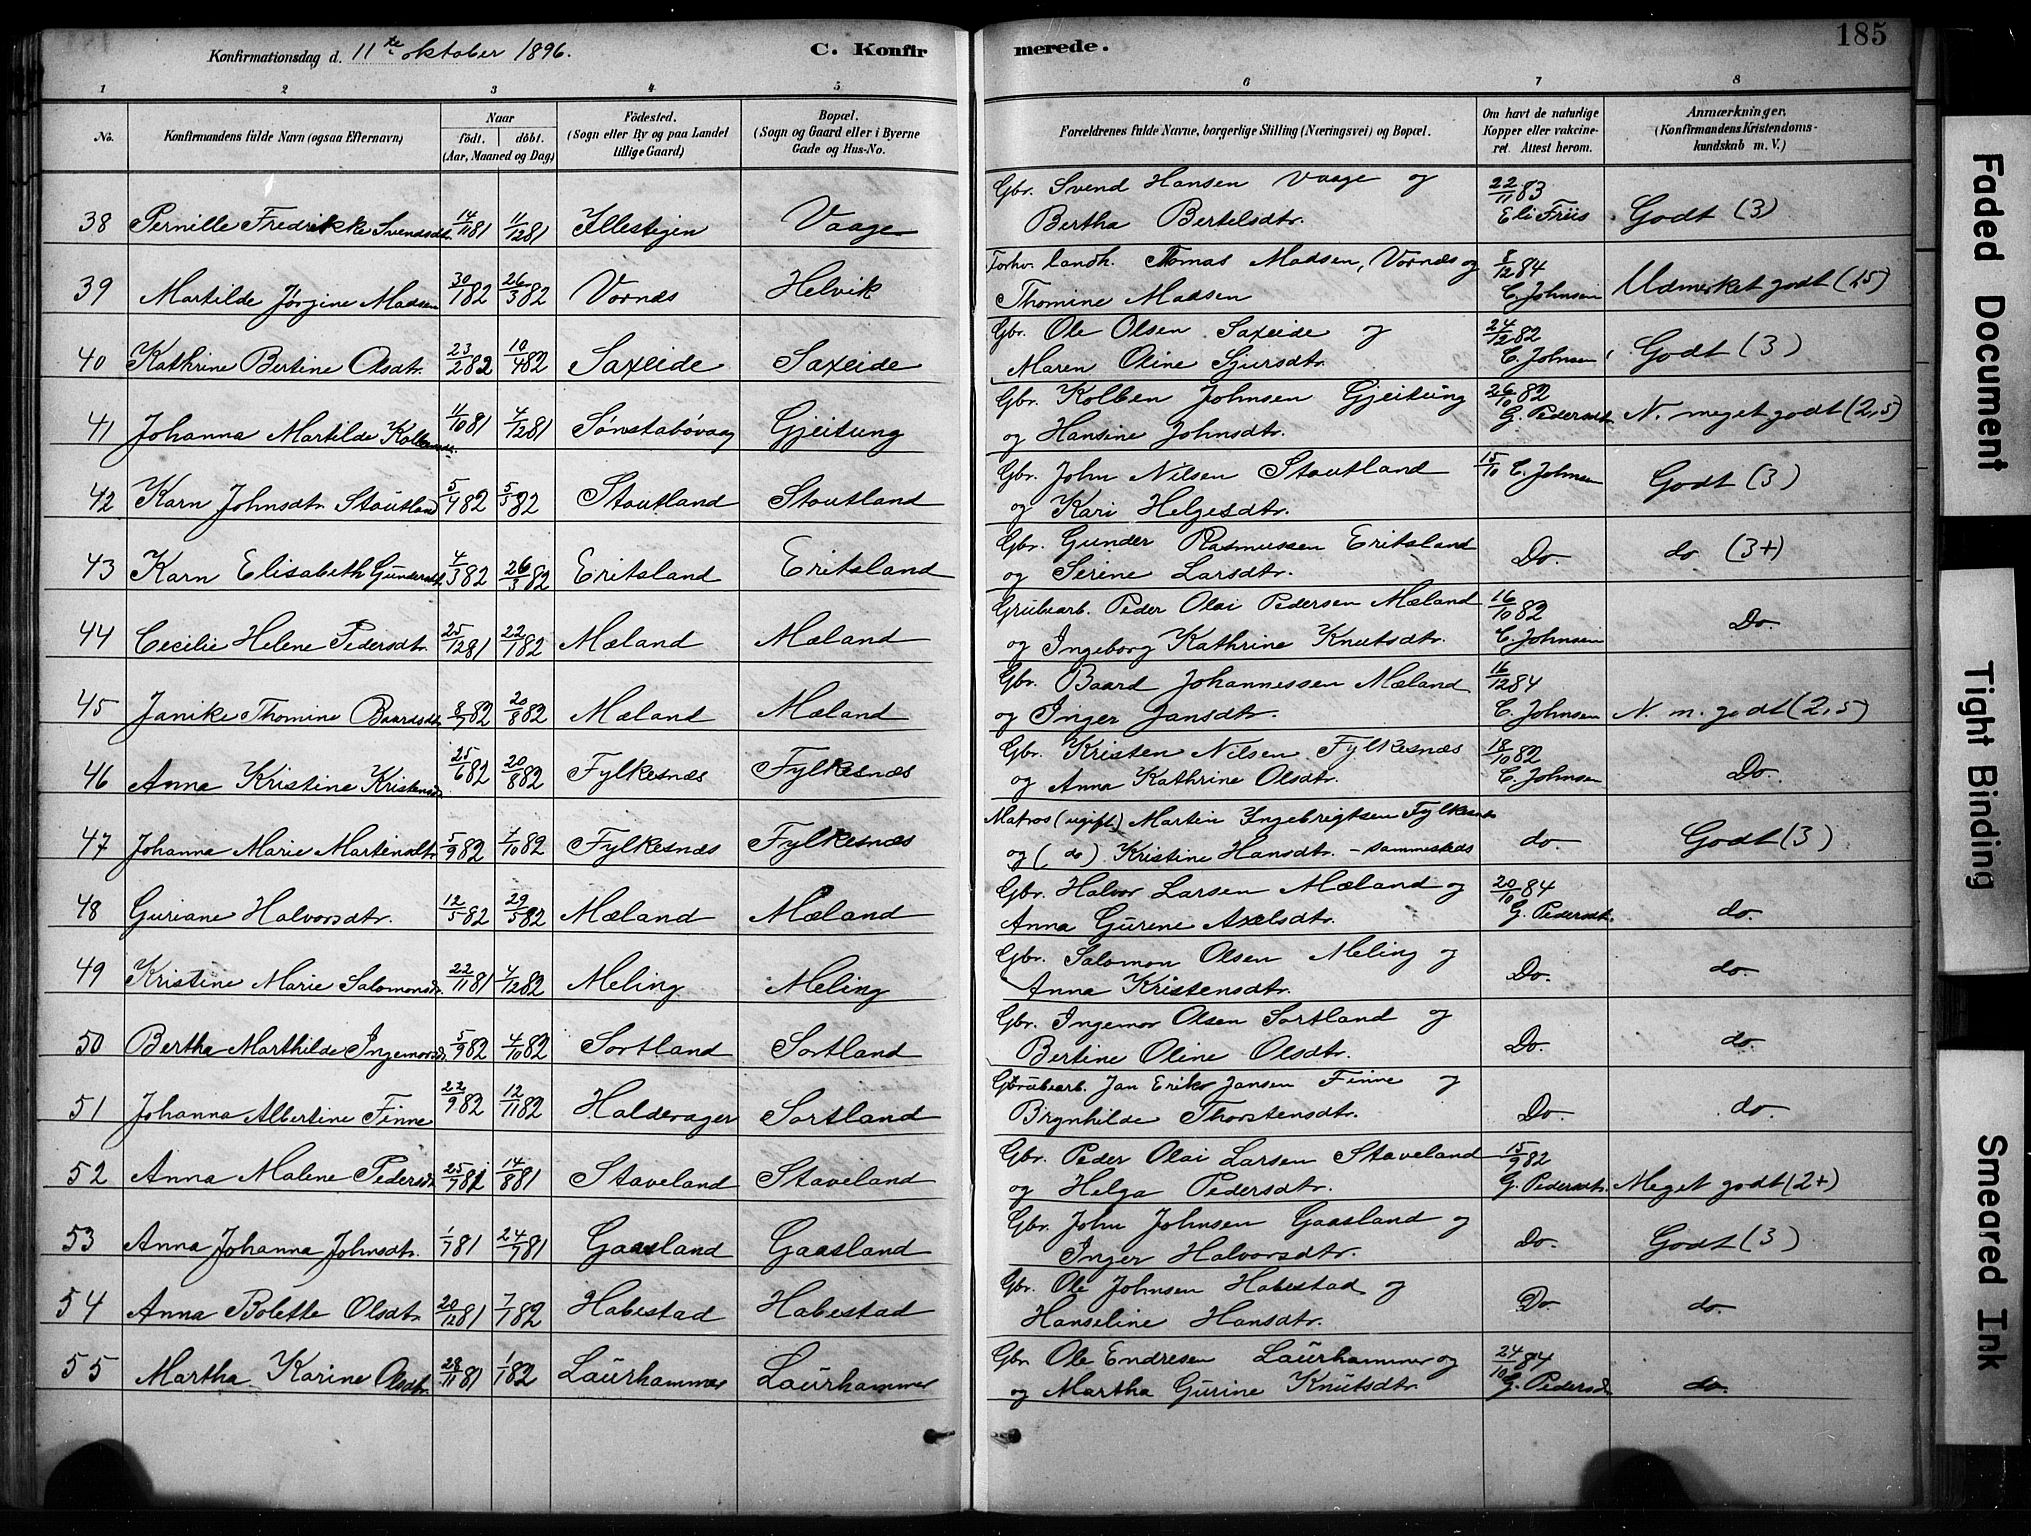 185
Konfirmationsdag d. 11te oktober 1896. C. Konfirmerede.
1 2 3 4 5 6 7 8
No. Konfirmandens fulde Navn (ogsaa Efternavn) Naar födt. döbt. (Aar, Maaned og Dag) Födested. (Sogn eller By og paa Landet tillige Gaard) Bopæl. (Sogn og Gaard eller i Byerne Gade og Hus-No. Forældrenes fulde Navne, borgerlige Stilling (Næringsvei) og Bopæl. Om havt de naturlige Kopper eller vakcineret. Attest herom. Anmærkninger. (Konfirmandens Kristendomskundskab m. V.)
38 Pernille Fredrikke Svendsdtr. 14/11 81 11/12 81 Illestigen Vaage Gbr. Svend Hansen Vaage og Bertha Bertelsdtr. 22/11 83 Eli Friis Godt (3)
39 Martilde Jørgine Madsen 30/1 82 26/3 82 Vornæs Helvik Forhv. landh. Tomas Madsen, Vornæs og Thomine Madsen 8/12 84 C. Johnsen Udmerket godt (1,5)
40 Kathrine Bertine Olsdtr. 23/2 82 10/4 82 Saxeide Saxeide Gbr. Ole Olsen Saxeide og Maren Oline Sjursdtr. 24/12 82 C. Johnsen Godt (3)
41 Johanna Martilde Kolbensdr. 11/10 81 4/12 81 Sønstabøvaag Gjeitung Gbr. Kolben Johnsen Gjeitung og Hansine Johnsdtr. 26/10 82 G. Pedersdtr. N. meget godt (2,5)
42 Karn Johnsdtr Stoutland 5/4 82 5/5 82 Stoutland Stoutland Gbr. John Nilsen Stoutland og Kari Helgesdtr. 15/10 C. Johnsen Godt (3)
43 Karn Elisabeth Gundersdt. 4/3 82 26/3 82 Eritsland Eritsland Gbr. Gunder Rasmussen Eritsland og Serine Larsdtr. Do. do (3+)
44 Cecilie Helene Pedersdtr. 25/12 81 22/1 82 Mæland Mæland Grubearb. Peder Olai Pedersen Mæland og Ingeborg Kathrine Knutsdtr. 16/10 82 C. Johnsen Do.
45 Janike Thomine Baardsdtr. 8/7 82 20/8 82 Mæland Mæland Gbr. Baard Johannessen Mæland og Inger Jansdtr. 16/12 84 C. Johnsen N. m. godt (2,5)
46 Anna Kristine Kristensdr. 25/6 82 20/8 82 Fylkesnæs Fylkesnæs Gbr. Kristen Nilsen Fylkesnæs og Anna Kathrine Olsdtr. 18/10 82 C. Johnsen Do.
47 Johanna Marie Martensdtr. 5/9 82 7/10 82 Fylkesnæs Fylkesnæs Matros (ugift) Martin Ingebrigtsen Fylkesnæs og (do) Kristine Hansdtr. - sammesteds do. Godt (3)
48 Guriane Halvorsdtr. 12/5 82 29/5 82 Mæland Mæland Gbr. Halvor Larsen Mæland og Anna Gurene Axelsdtr. 20/10 84 G. Pedersdt. do.
49 Kristine Marie Salomonsdr. 22/11 81 4/12 82 Meling Meling Gbr. Salomon Olsen Meling og Anna Kristensdtr. Do. do.
50 Bertha Marthilde Ingemorsdr. 5/9 82 4/10 82 Sortland Sortland Gbr. Ingemor Olsen Sortland og Bertine Oline Olsdtr. Do. do.
51 Johanna Albertine Finne 22/9 82 12/11 82 Halderager Sortland Grubearb. Jan Erik Jansen Finne og Brynhilde Thorstensdtr. Do. do.
52 Anna Malene Pedersdr. 25/7 81 14/8 81 Staveland Staveland Gbr. Peder Olai Larsen Staveland og Helga Pedersdtr. 15/9 82 G. Pedersdtr. Meget godt (2+)
53 Anna Johanna Johnsdtr. 1/7 81 24/7 81 Gaasland Gaasland Gbr. John Johnsen Gaasland og Inger Halvorsdtr. Do. Godt (3)
54 Anna Bolette Olsdtr. 20/12 81 7/1 82 Habestad Habestad Gbr. Ole Johnsen Habestad og Hanseline Hansdtr. Do do.
55 Martha Karine Olsdtr. 28/11 81 1/1 82 Laurhammer Laurhammer Gbr Ole Endresen Laurhammer og og Martha Gurine Knutsdtr. 24/10 84 G. Pedersd. do.
Faded Document
Tight Binding
Smeared Ink